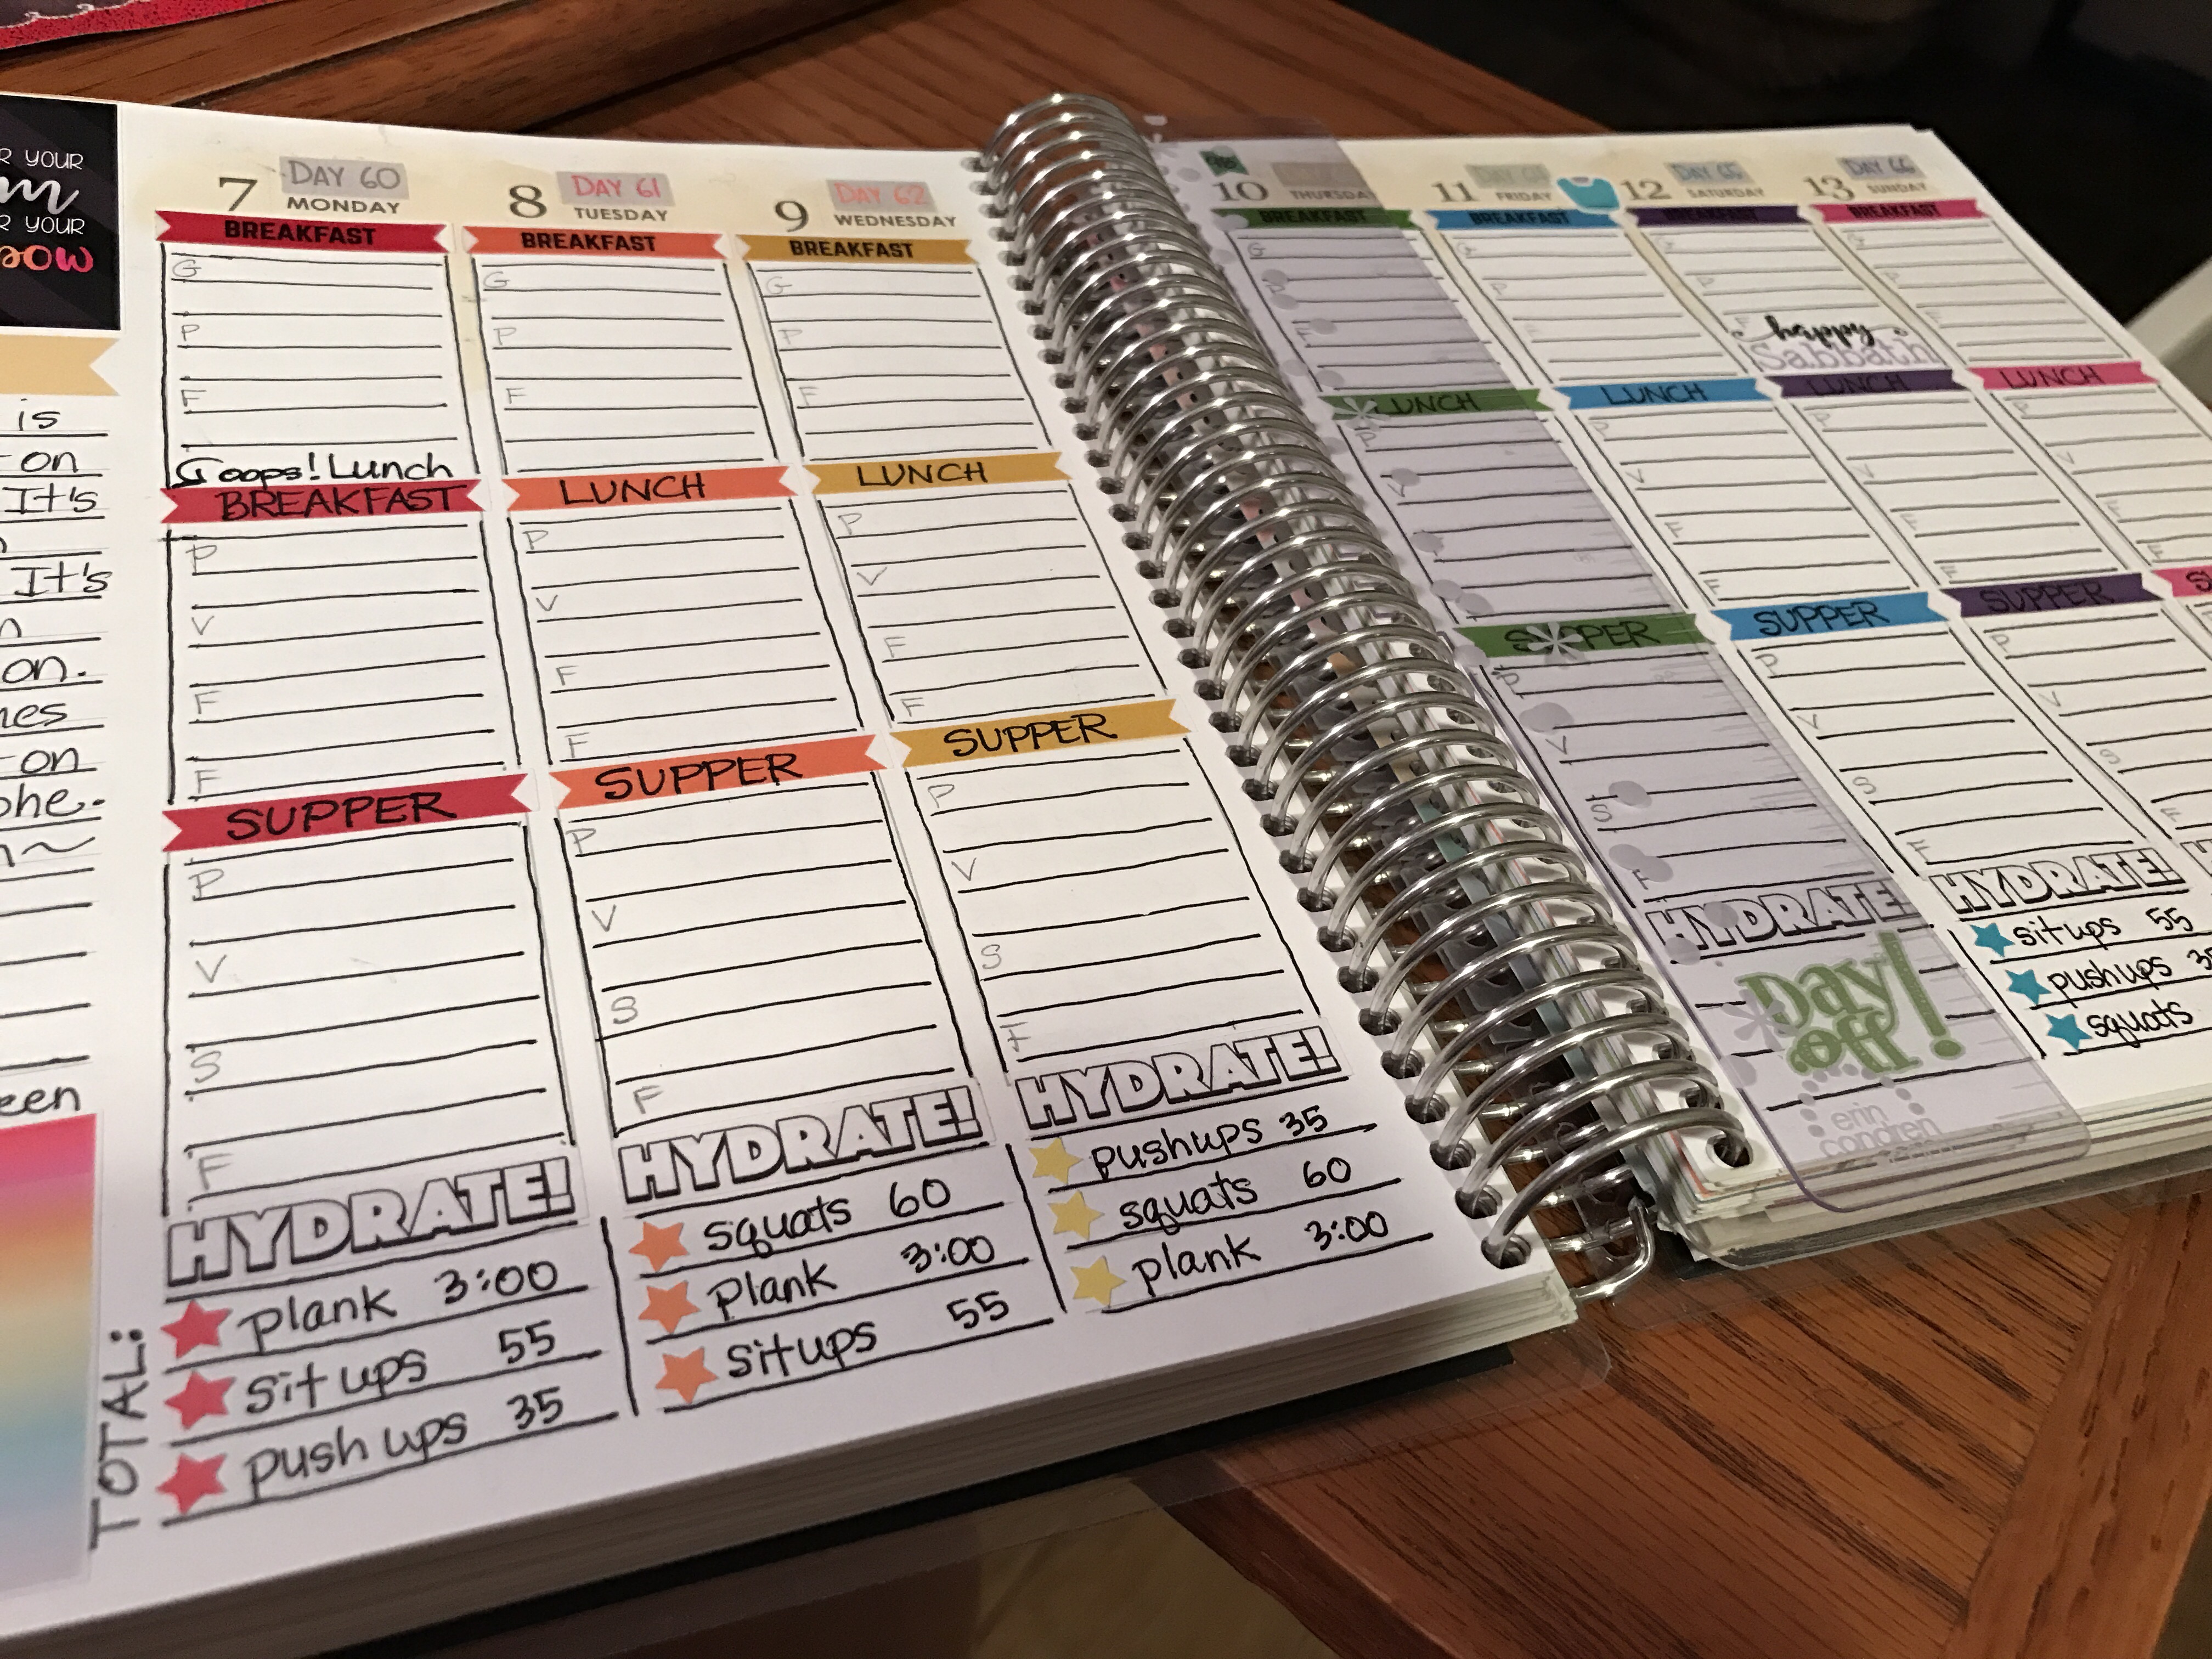 R YOUR
m
R YOUR
is
on
It's
It's
on.
on
een
TOTAL:
7 DAY 60
MONDAY
BREAKFAST
G
P
F
oops! Lunch
BREAKFAST
P
V
F
F
SUPPER
P
V
S
F
HYDRATE!
plank 3:00
sit ups 55
push ups 35
8 DAY 61
TUESDAY
BREAKFAST
G
P
F
LUNCH
P
V
F
F
SUPPER
P
V
S
F
HYDRATE!
squats 60
plank 3:00
situps 55
9 DAY 62
WEDNESDAY
BREAKFAST
G
P
F
LUNCH
P
V
F
F
SUPPER
P
V
S
F
HYDRATE!
pushups 35
squats 60
plank 3:00
10 THURSDA
BREAKFAST
G
LUNCH
P
V
SUPPER
P
V
S
F
HYDRATE!
Day
off!
erin
condren
11 FRIDAY
BREAKFAST
G
P
LUNCH
P
V
F
F
SUPPER
P
V
S
F
HYDRATE!
situps 55
pushups 35
squats
12 DAY 65
SATURDAY
BREAKFAST
G
P
happy
Sabbath
LUNCH
P
V
F
F
SUPPER
P
V
S
F
13 DAY 66
SUNDAY
BREAKFAST
G
P
F
LUNCH
P
V
F
F